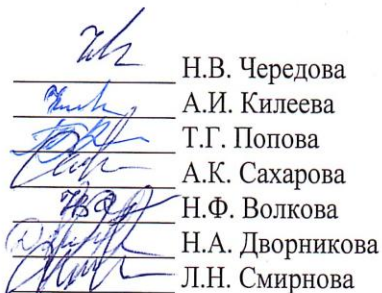 Н.В. Чередова
А.И. Килеева
Т.Г. Попова
А.К. Сахарова
Н.Ф. Волкова
Н.А. Дворникова
Л.Н. Смирнова